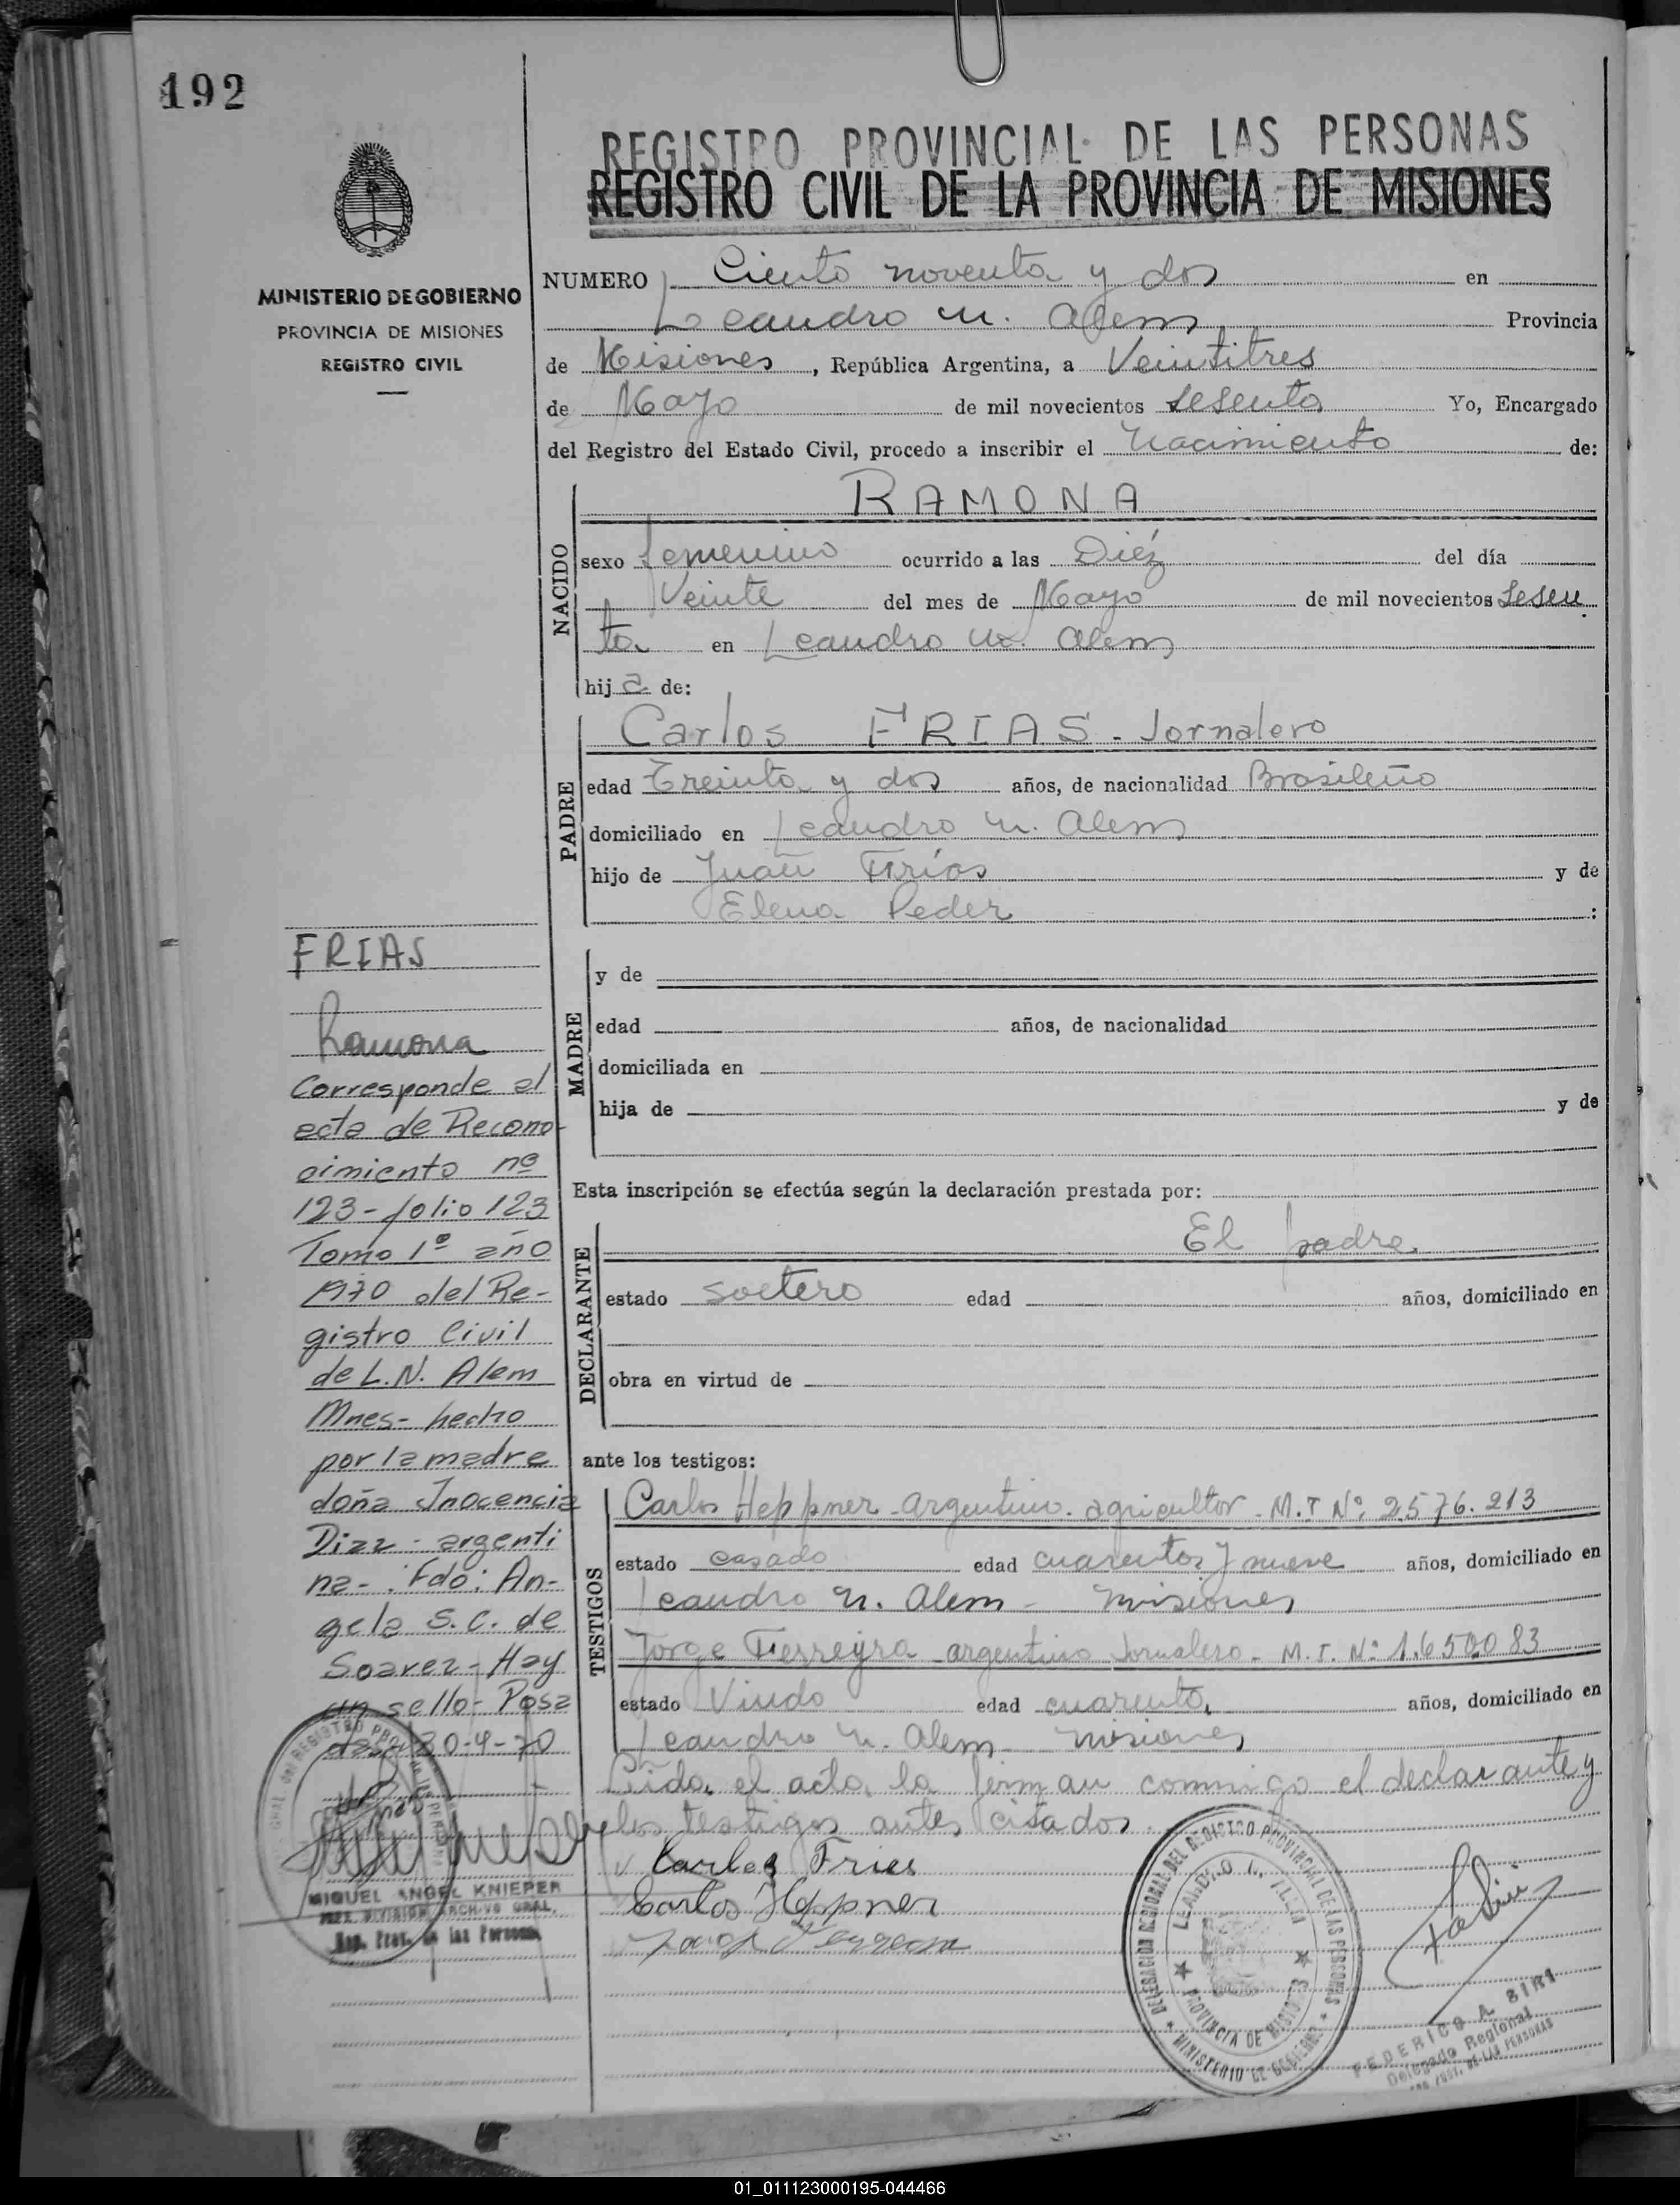 192
REGISTRO PROVINCIAL DE LAS PERSONAS
REGISTRO CIVIL DE LA PROVINCIA DE MISIONES
MINISTERIO DE GOBIERNO
PROVINCIA DE MISIONES
REGISTRO CIVIL
NUMERO Ciento noventa y dos en
Leandro N. Alem Provincia
de Misiones, República Argentina, a Veintitres
de Mayo de mil novecientos sesenta Yo, Encargado
del Registro del Estado Civil, procedo a inscribir el Nacimiento de:
NACIDO
RAMONA
sexo femenino ocurrido a las Diéz del día
Veinte del mes de Mayo de mil novecientos sesen
ta en Leandro N. Alem
hija de:
PADRE
Carlos FRIAS - Jornalero
edad Treinta y dos años, de nacionalidad Brasileño
domiciliado en Leandro N. Alem
hijo de Juan Frías y de
Elena Peder :
MADRE
y de
edad años, de nacionalidad
domiciliada en
hija de y de
Esta inscripción se efectúa según la declaración prestada por:
DECLARANTE
El padre
estado soltero edad años, domiciliado en
obra en virtud de
ante los testigos:
TESTIGOS
Carlos Heppner - argentino - agricultor - M.I Nº: 2576.213
estado casado edad cuarenta y nueve años, domiciliado en
Leandro N. Alem - Misiones
Jorge Ferreyra - argentino Jornalero - M.I. Nº: 1.650083
estado Viudo edad cuarenta años, domiciliado en
Leandro N. Alem - Misiones
Leida el acta, la firman conmigo el declarante y
los testigos antes citados.
Carlos Fries
Carlos Heppner
FRIAS
Ramona
Corresponde al
acta de Recono-
cimiento nº
123 - folio 123
Tomo 1º año
1970 del Re-
gistro Civil
de L.N. Alem
Mnes - hecho
por la madre
doña Inocencia
Diaz - argenti
na - Fdo: An-
gela S.C. de
Soarez - Hay
un sello - Posa
das, 30-4-70
MIGUEL ANGEL KNIEPER
JEFE DIVISION ARCHIVO GRAL.
Reg. Prov. de las Personas
DELEGACION REGIONAL DEL REGISTRO PROVINCIAL DE LAS PERSONAS
LEANDRO N. ALEM
PROVINCIA DE MISIONES
MINISTERIO DE GOBIERNO
FEDERICO A. BIRI
Delegado Regional
REG. PROV. DE LAS PERSONAS
01_011123000195-044466